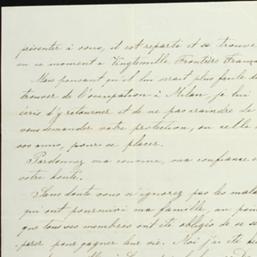 présenter à vous, il est reparti et se trouve
en ce moment a Vingtemille Frontière França
Mais pensant qu'il lui serait plus facile de
trouver de l'occupation à Milan, je lui
écris d'y retourner et de ne pas craindre de
vous demander votre protection, ou celle de
vos amis, pour se placer.
Pardonnez ma ma confiance en
votre bonté.
Sans doute vous n'ignorez pas les malh
qui ont poursuivi ma famille au point
que tous ses membres ont été obligés de se sé
parer pour gagner leur vie. Moi j'ai été